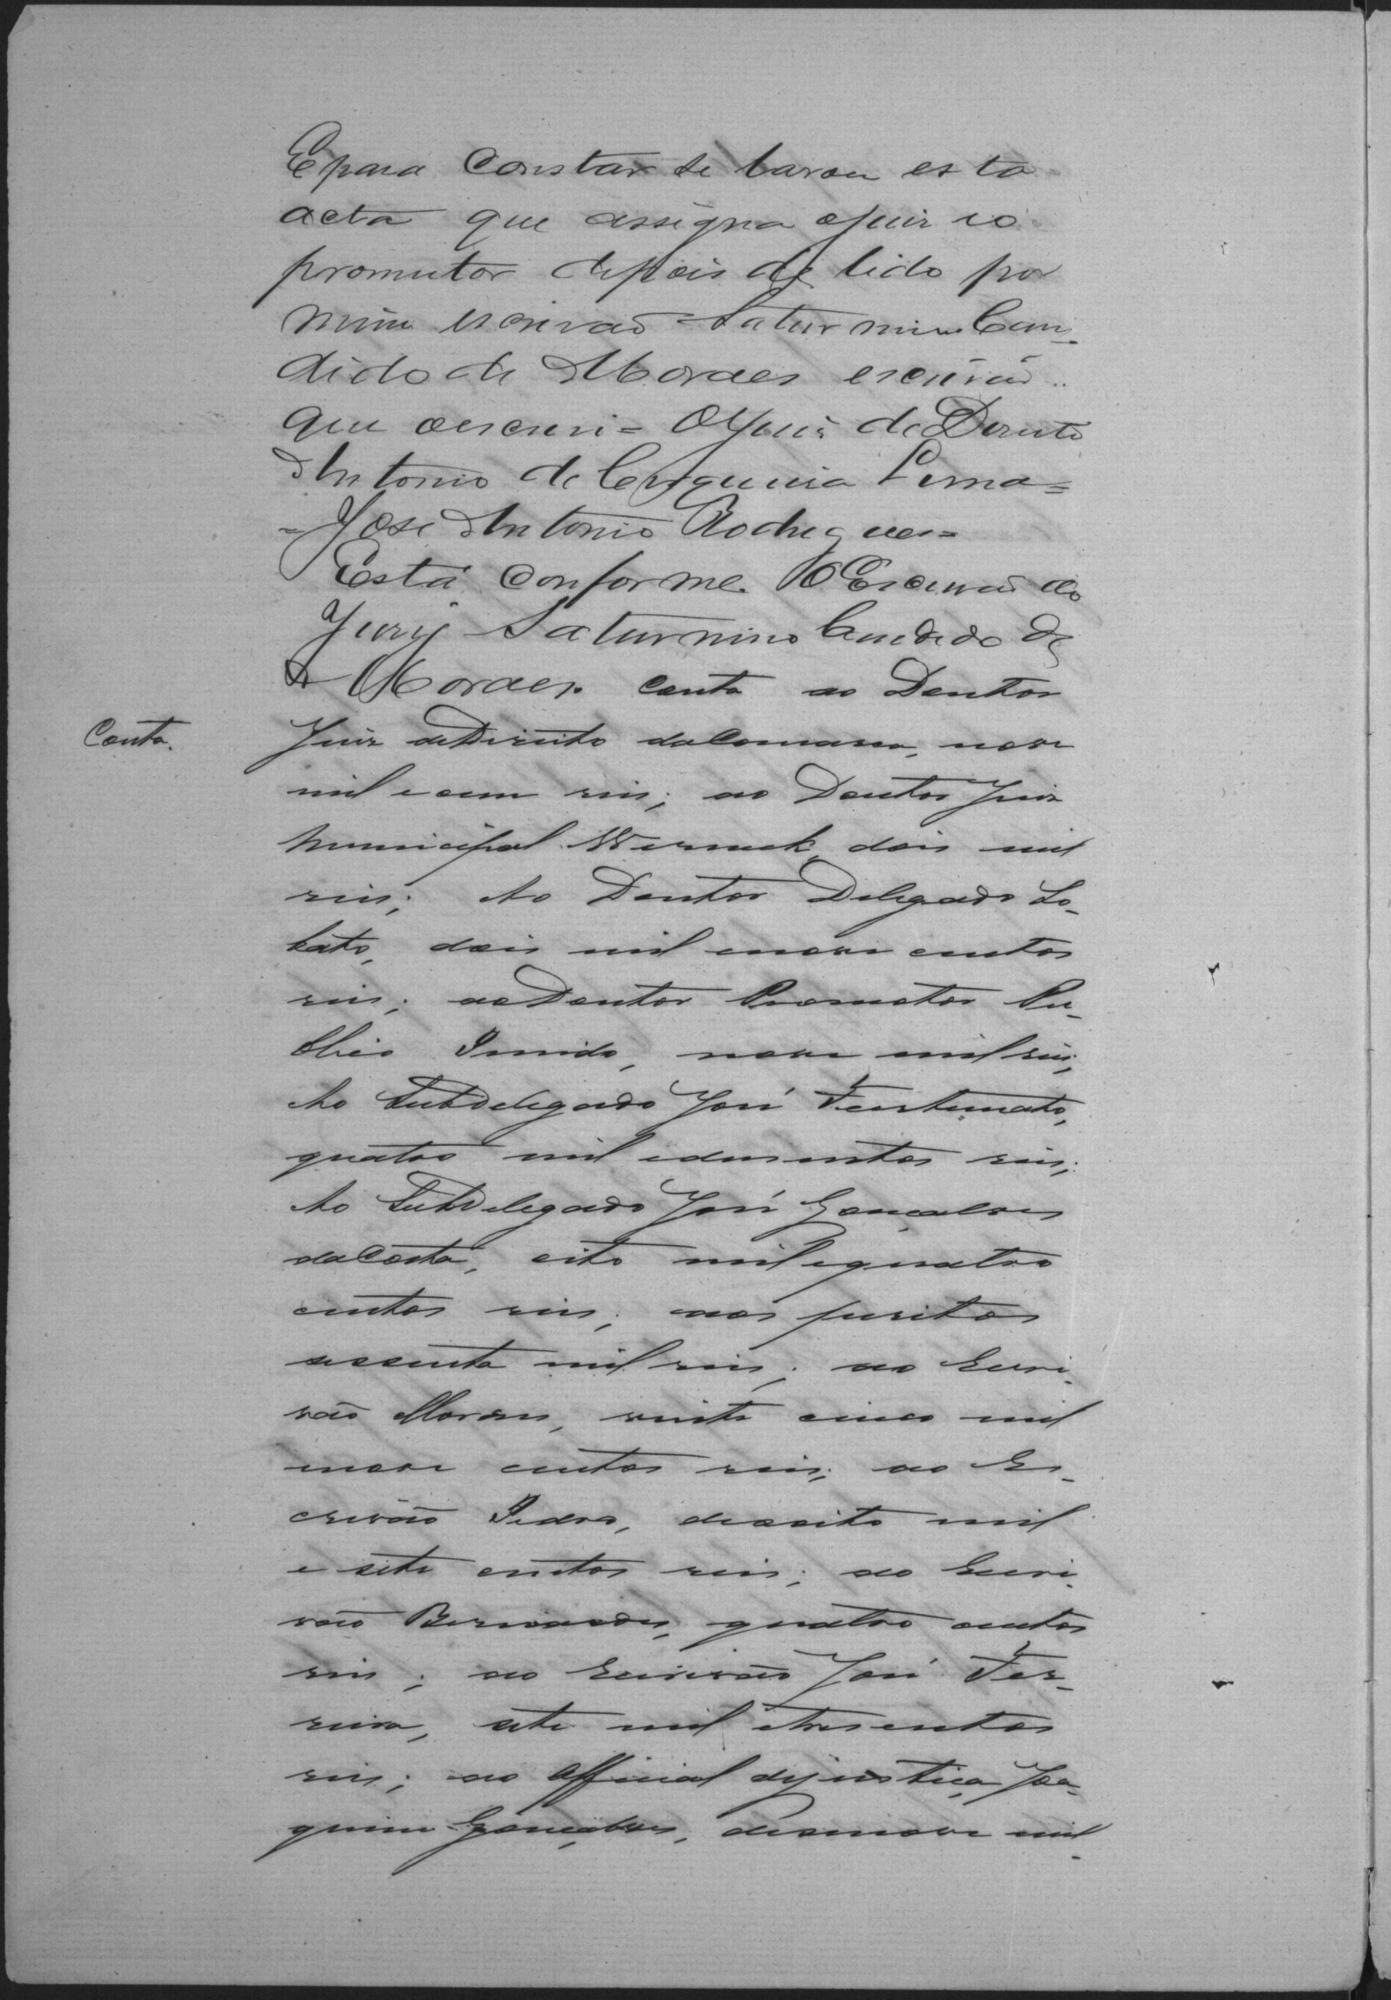 E para constar se lavrou esta
acta que assigna o juiz e o
promutor depois de lido por
mim escrivaõ Saturnino Can-
dido de Moraes escrivaõ
que o escrevi = O Juiz de Direito
Antonio de Cerqueira Lima =
= José Antonio Rodrigues =
Está conforme. O Escrivaõ do
Jury Saturnino Candido de
Moraes. Conta ao Doutor
Conta.
Juiz de Direito da Comarca, nove
mil e cem reis; ao Doutor Juiz
Municipal Werneck, dois mil
reis; Ao Doutor Delegado Lo-
bato, dois mil e nove centos
reis; ao Doutor Promotor Pu-
blico, nove mil reis;
Ao Subdelegado José Fortunato,
quatro mil e dusentos reis;
Ao Subdelegado José Gonçalves
da Costa, oito mil e quatro
centos reis; aos peritos
sessenta mil reis; ao Escri-
vão Moraes, vinte cinco mil
e nove centos reis; ao Es-
crivão Pedro, desoito mil
e sete centos reis; ao Escri-
vão Bernardes, quatro centos
reis; ao Escrivão José Fer-
reira, sete mil e tresentos
reis; ao Official de justiça Joa-
quim Gonçalves, desenove mil